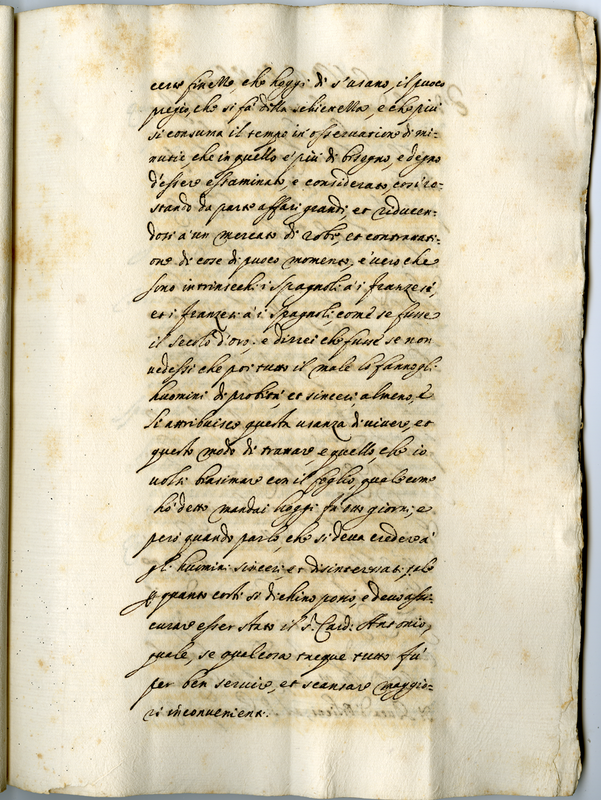 cerve finezze che hoggi di s'usano, il puoco
pregio, che si fa della schiettezza, e che piú
si consuma il tempo in osservatione di mi-
nutie, che in quello e' piú di bisogno, e degno
d'essere essaminato, e considerato, cosi re-
stando da parte affari grandi, et riducen-
dosi á un mercato di robe, et contrattati-
one di cose di puoco momento, é vero che
sono intrinsechi i Spagnoli á i franzesi,
et i franzesi á i Spagnoli, come se fusse
il secolo d'oro, e direi che fusse se non
vedessi che poi tutto il male lo fanno gli
huomini di probitá, et sinceri, almeno, é
si attribuisce questa usanza di vivere et
questo modo di trattare, e quello, che io
volsi biasimare con il foglio, quale come
hó detto mandai hoggi fá otto giorni, e
peró quando parlo, che si deva credere á
gl'huomini sinceri, et disinteressati, tale
per quanto corti si dichino posso, e devo assi-
curare esser stato il S.r Card. Antonio,
quale, se qualcosa tacque tutto fú
per ben servire, et scansare maggio-
ri inconvenienti.